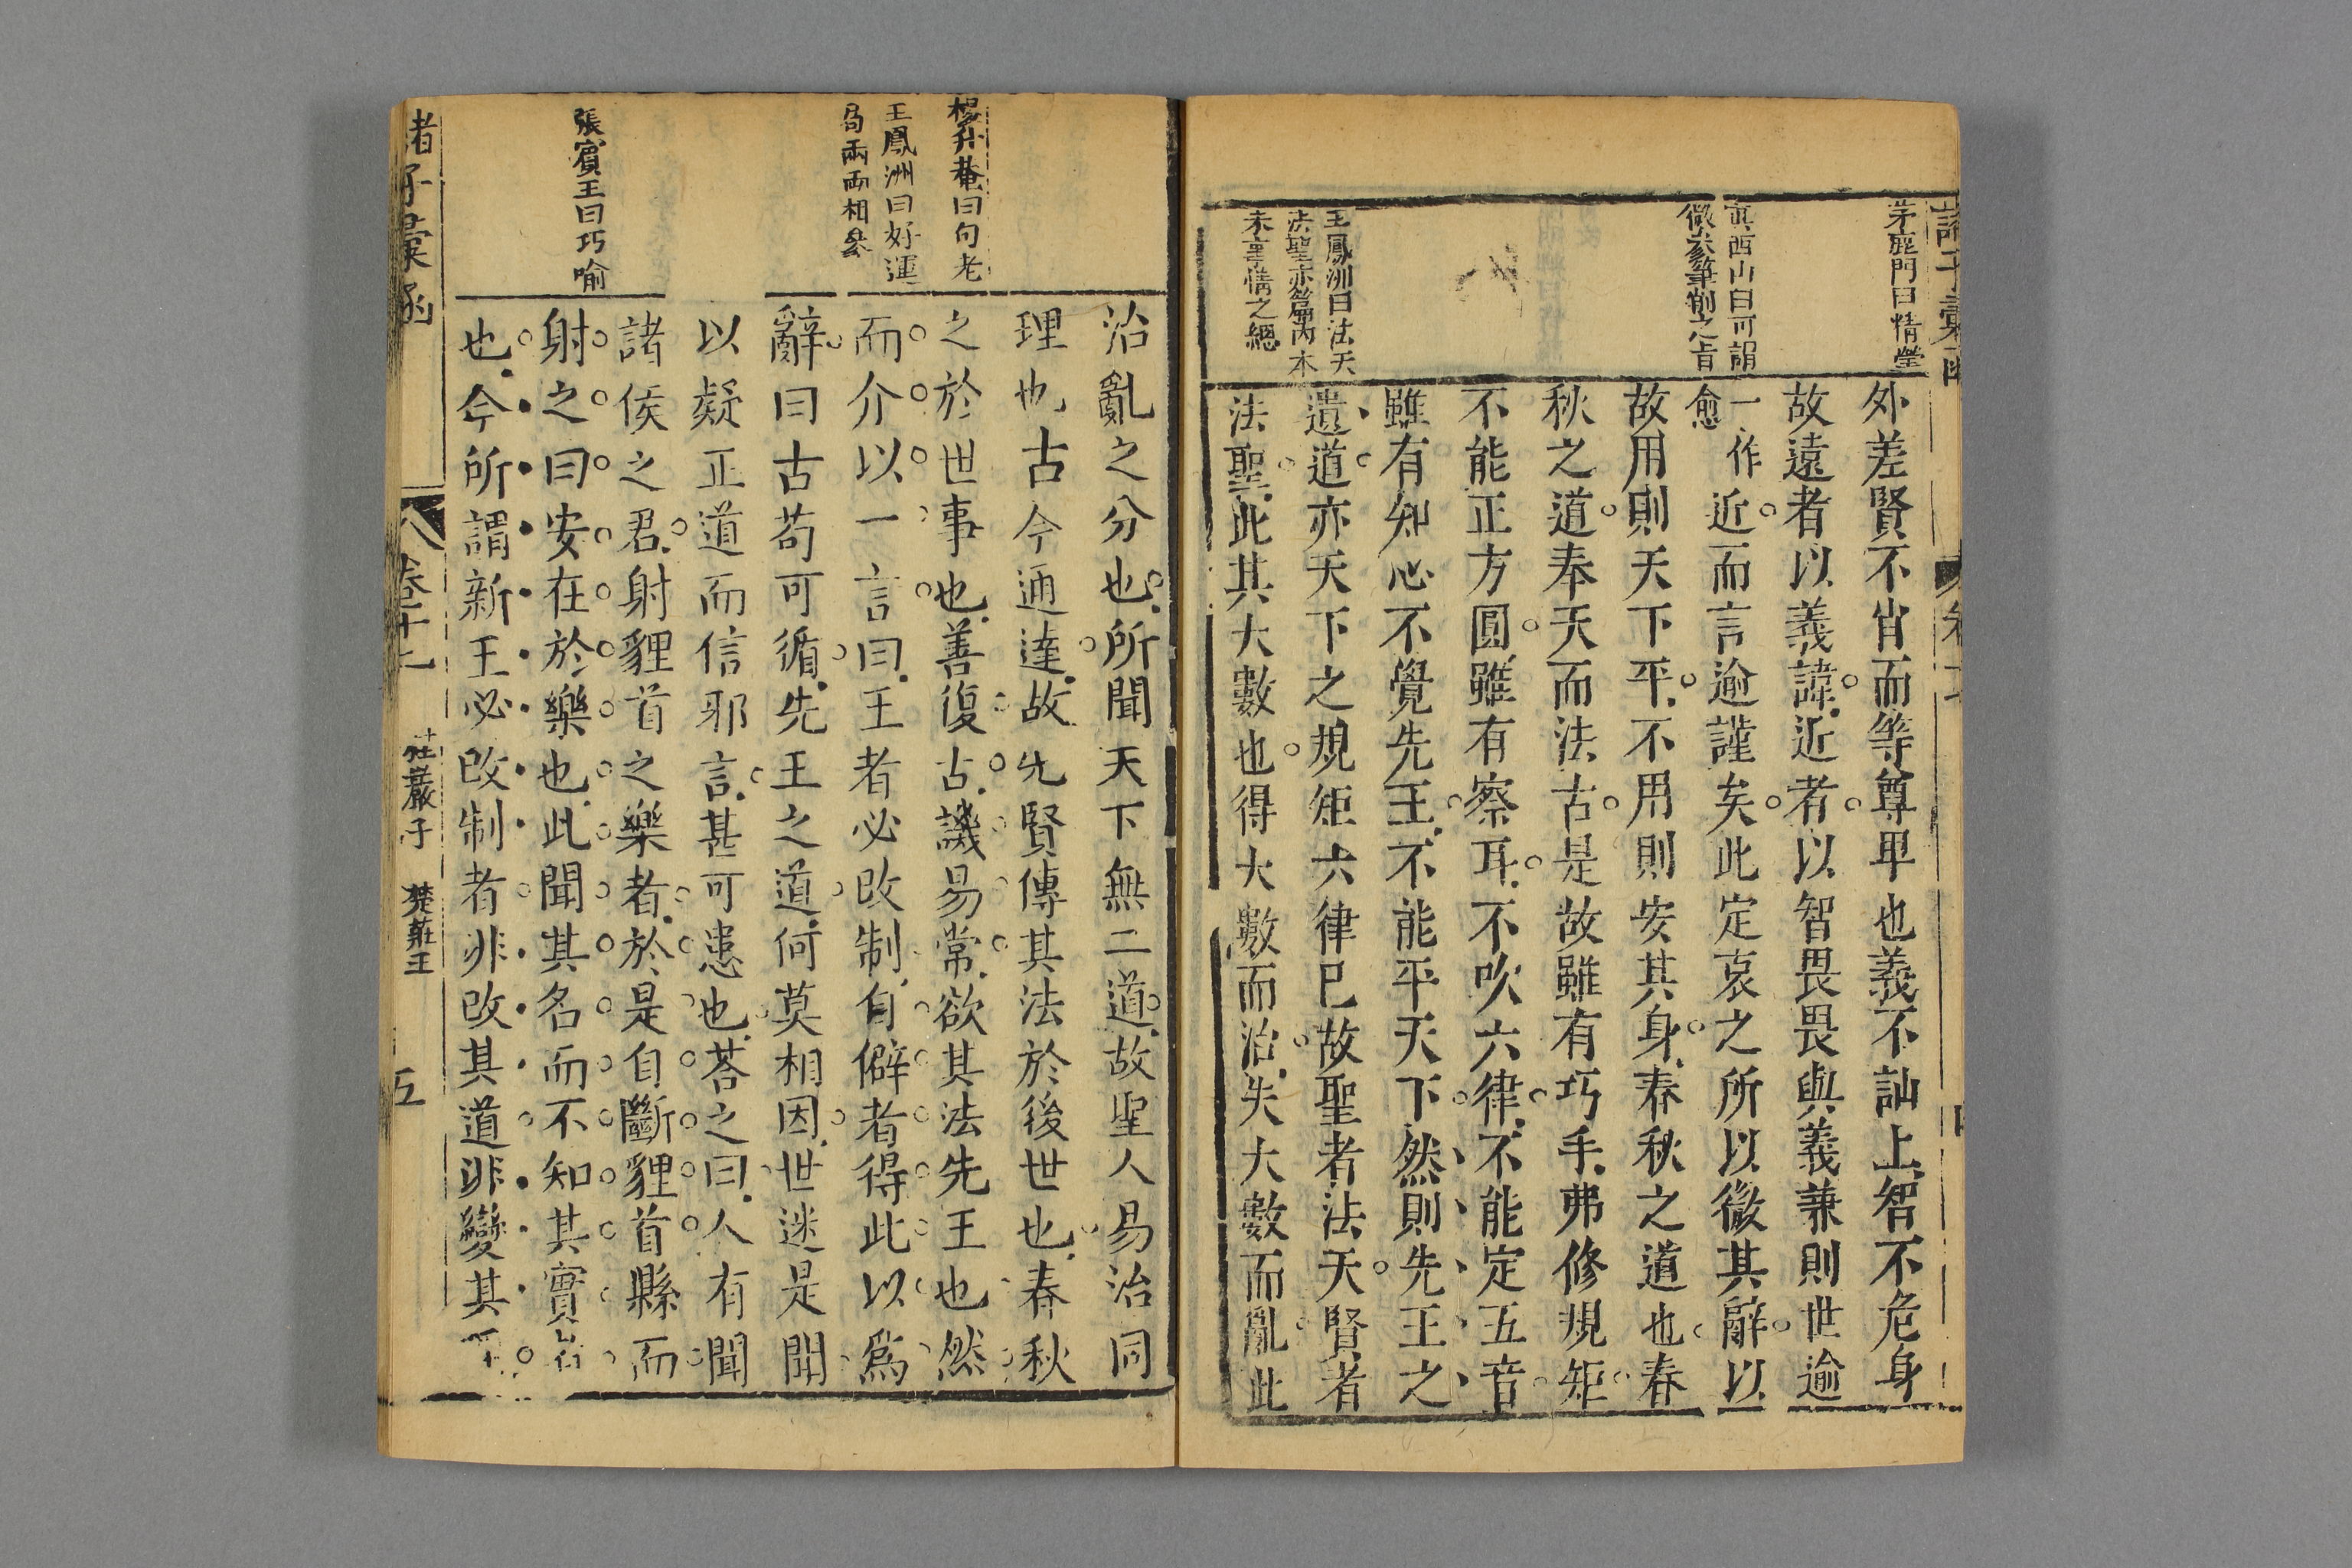 諸子彙函
茅鹿門曰情瑩
真西山曰可謂
微㕘筆削之旨
王鳳洲曰法天
法聖亦篇内本
末事情之總
外差賢不肖而等尊卑也義不訕上智不危身
故遠者以義諱近者以智畏畏與義兼則世逾
一作
愈
近而言逾謹矣此定哀之所以微其辭以
故用則天下平不用則安其身春秋之道也春
秋之道奉天而法古是故雖有巧手弗修規矩
不能正方圓雖有察耳不吹六律不能定五音
雖有知心不覺先王不能平天下然則先王之
遺道亦天下之規矩六律已故聖者法天賢者
法聖此其大數也得大數而治失大數而亂此
楊升菴曰句老
王鳳洲曰好運
局兩兩相㕘
張賓王曰巧喻
治亂之分也所聞天下無二道故聖人易治同
理也古今通達故先賢傳其法於後世也春秋
之於世事也善復古譏易常欲其法先王也然
而介以一言曰王者必改制自僻者得此以爲
辭曰古苟可循先王之道何莫相因世迷是聞
以疑正道而信邪言甚可患也荅之曰人有聞
諸侯之君射貍首之樂者於是自斷貍首縣而
射之曰安在於樂也此聞其名而不知其實者
也今所謂新王必改制者非改其道非變其
諸子彙函
卷十七
桂巖子
楚莊王
五